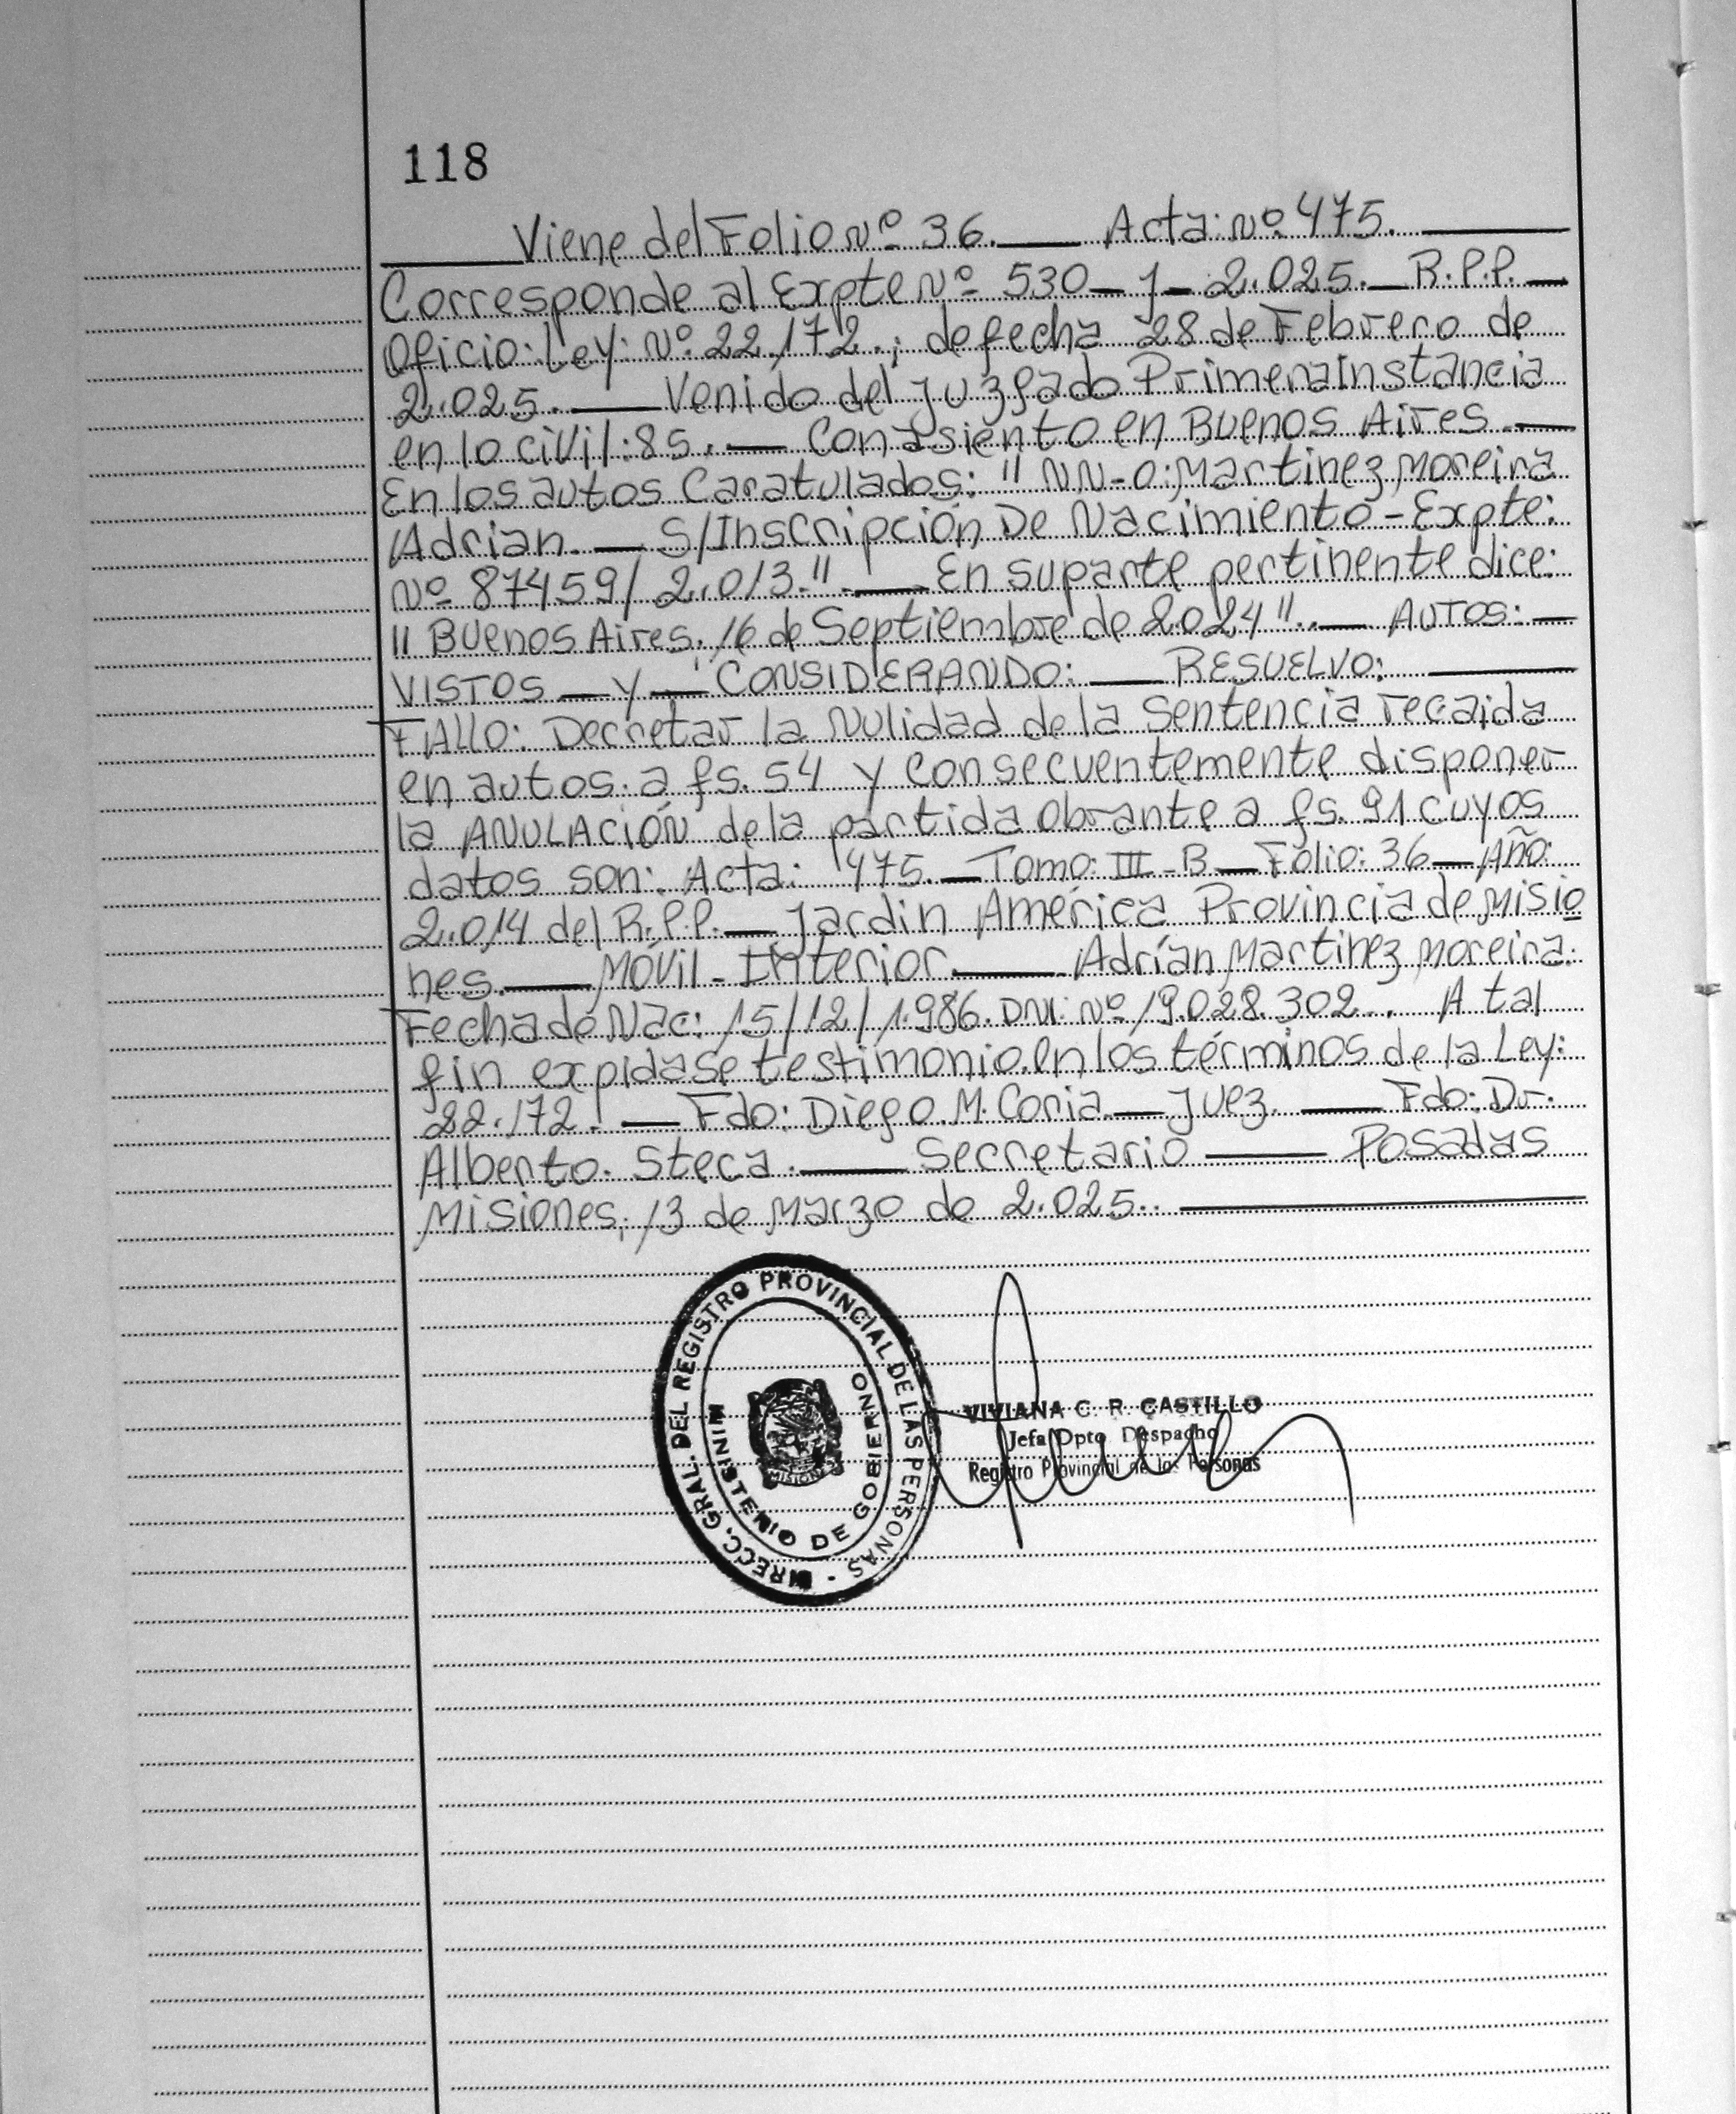 118
Viene del Folio Nº 36. — Acta: Nº 475. —
Corresponde al Expte Nº 530 — J — 2.025. — R.P.P. —
Oficio: Ley: Nº 22.172.; de fecha 28 de Febrero de
2.025. — Venido del Juzgado Primera Instancia
en lo civil: 85. — Con Asiento en Buenos Aires —
En los autos Caratulados: " NN - O: Martinez Moreira
Adrian. — S/Inscripción De Nacimiento - Expte:
Nº 87459/ 2.013.". — En su parte pertinente dice:
" Buenos Aires. 16 de Septiembre de 2.024 ". — AUTOS: —
VISTOS — Y — CONSIDERANDO: — RESUELVO: —
FALLO: Decretar la Nulidad de la Sentencia recaida
en autos. a fs. 54 y consecuentemente disponer
la ANULACIÓN de la partida obrante a fs. 91 cuyos
datos son: Acta: 475. — Tomo: III - B — Folio: 36 — Año:
2.014 del R.P.P. — Jardin América Provincia de Misio
nes. — MÓVIL - Interior — Adrían Martinez Moreira.
Fecha de Nac: 15/12/1.986. DNI: Nº 19.028.302.. A tal
fin expidase testimonio en los términos de la Ley:
22.172. — Fdo: Diego M. Coria — Juez. — Fdo: Dr.
Alberto. Steca. — Secretario — Posadas
Misiones, 13 de Marzo de 2.025.. —
DIRECC. GRAL. DEL REGISTRO PROVINCIAL DE LAS PERSONAS -
MINISTERIO DE GOBIERNO
MISIONES
VIVIANA C. R. CASTILLO
Jefa Dpto Despacho
Registro Provincial de las Personas